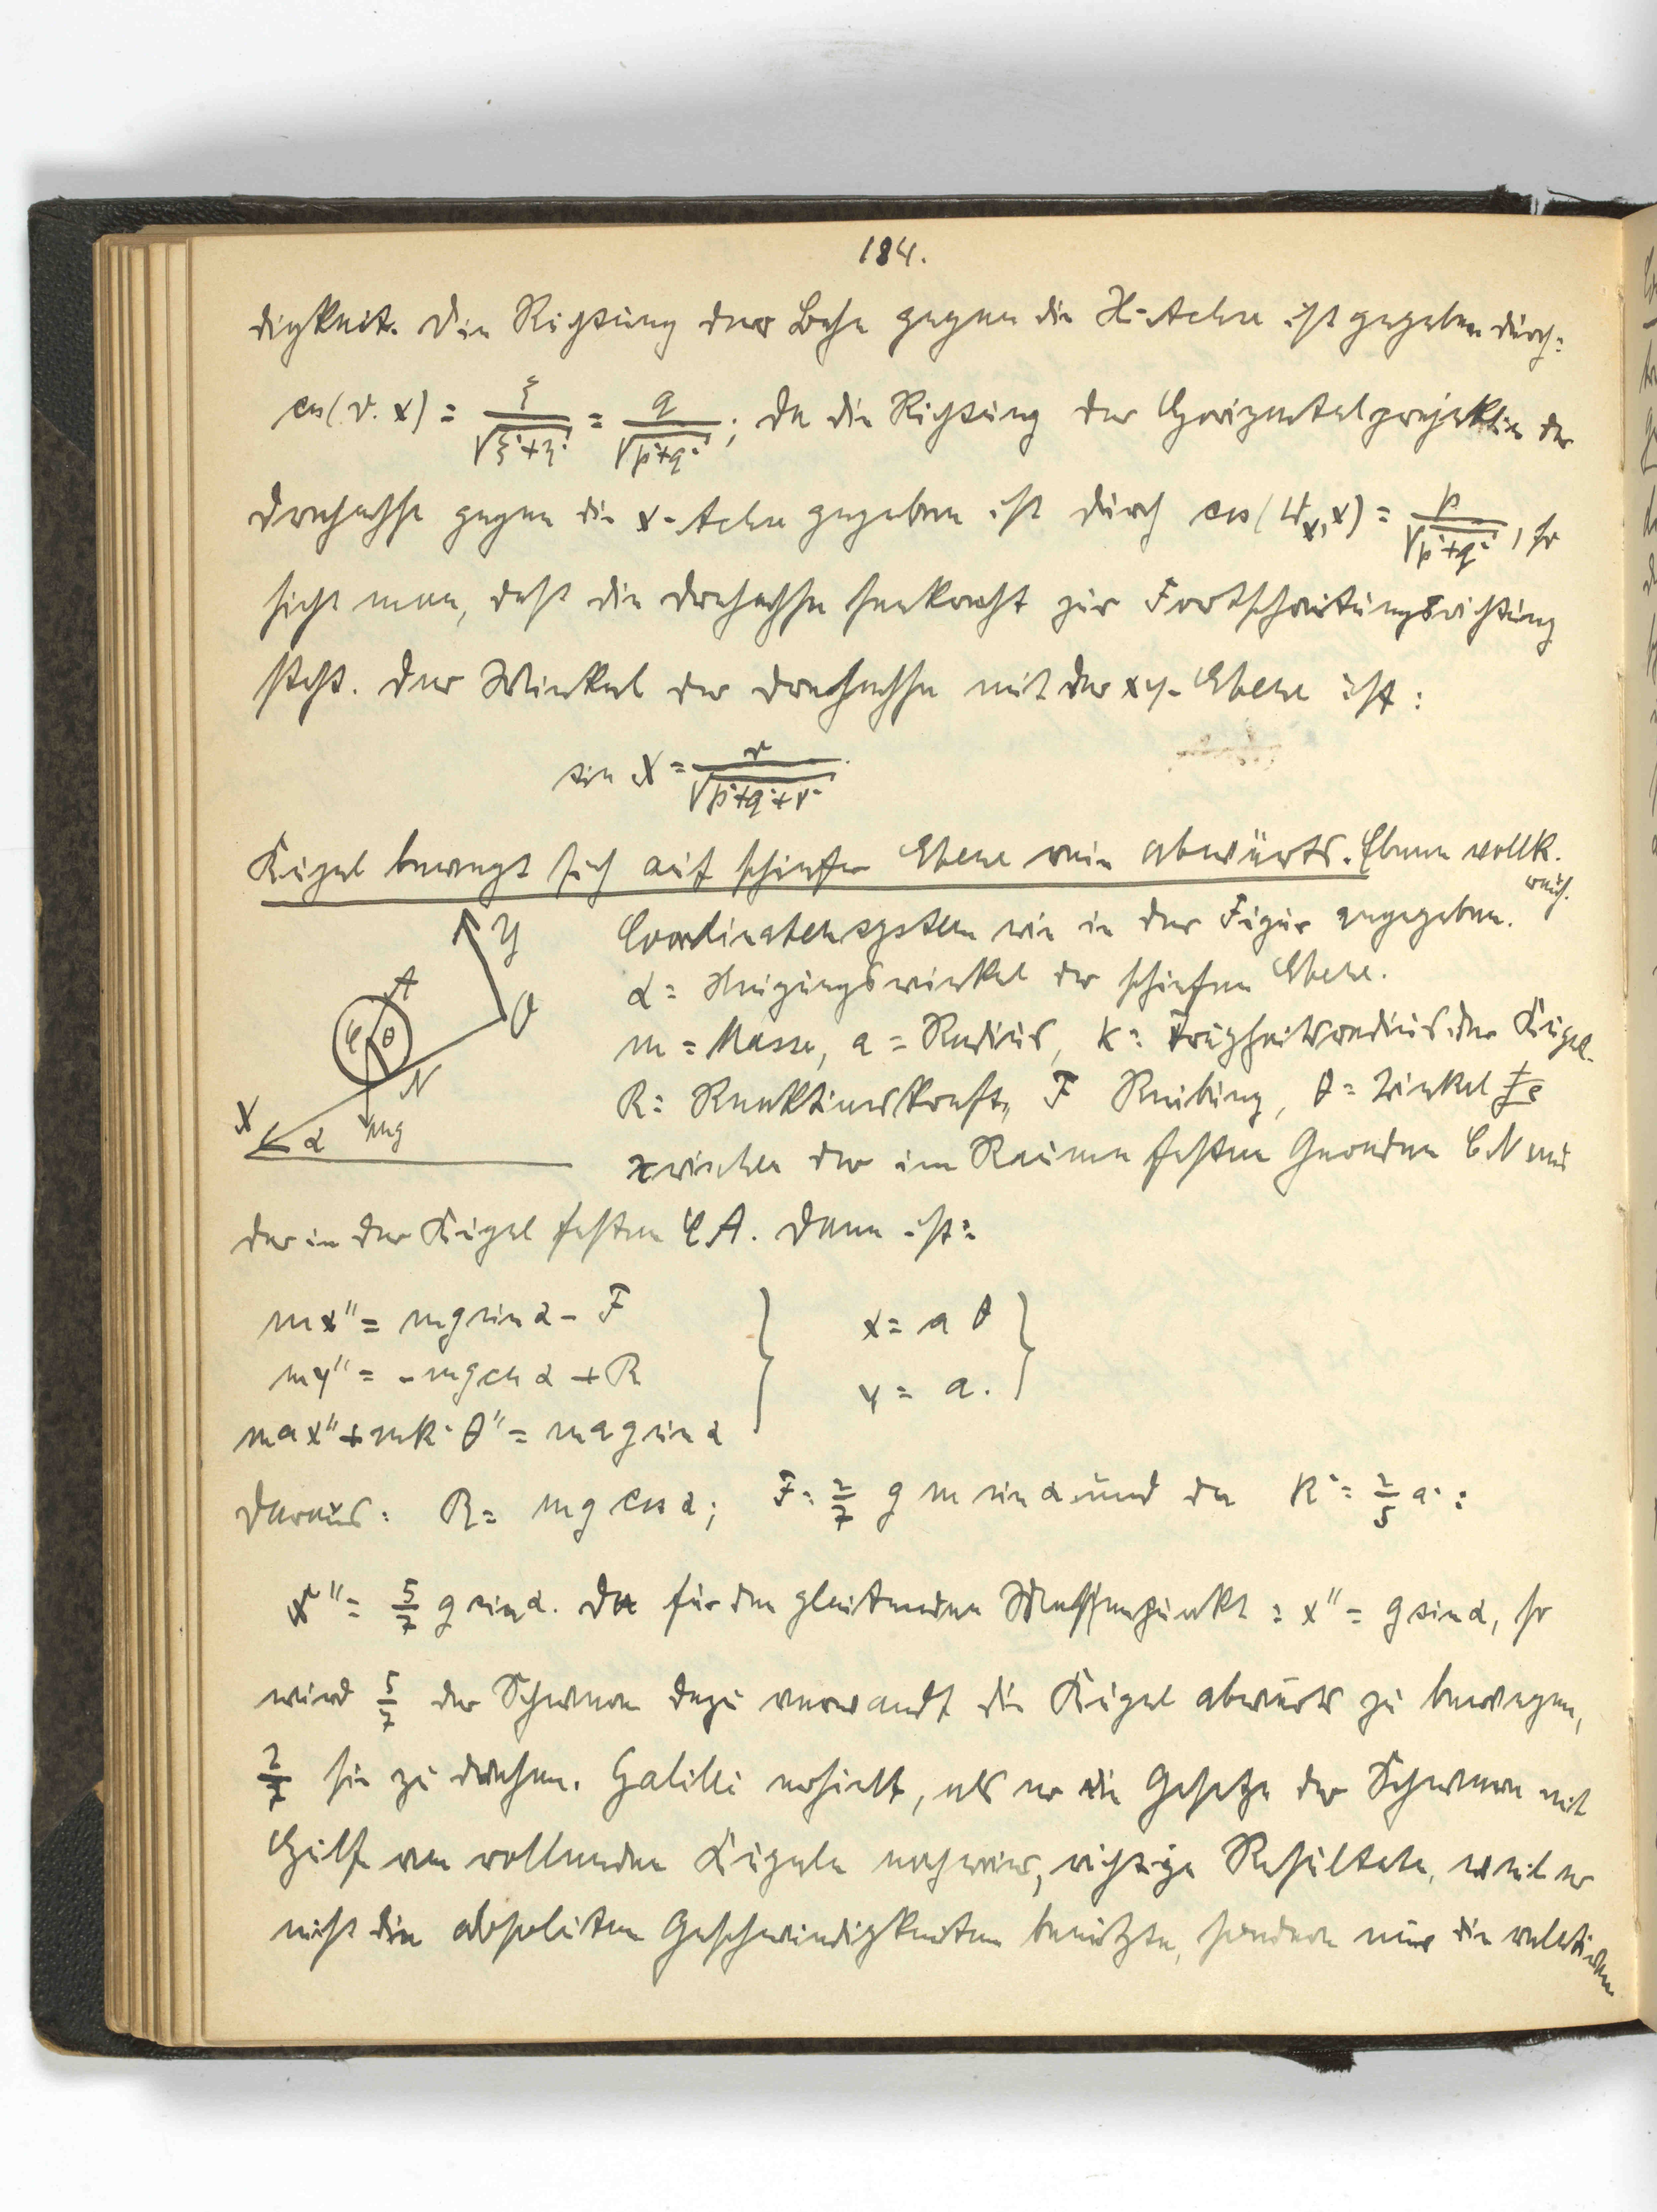 184.
digkeit. Die Richtung der Bahn gegen die X-Achse ist gegeben durch:
cos(v.x) = ξ/√(ξ²+η²) = q/√(p²+q²); da die Richtung der Horizontalprojektion der
Drehachse gegen die x-Achse gegeben ist durch cos(W_x,x) = p/√(p²+q²), so
sieht man, daß die Drehachse senkrecht zur Fortschreitungsrichtung
steht. Der Winkel der Drehachse mit der xy-Ebene ist:
sin X = r/√(p²+q²+r²).
Kugel bewegt sich auf schiefer Ebene rein abwärts. Ebene vollk.
rauh.
Coordinatensystem wie in der Figur angegeben.
α = Neigungswinkel der schiefen Ebene.
m = Masse, a = Radius, k = Trägheitsradius der Kugel.
R = Reaktionskraft, F Reibung, θ = Winkel
zwischen der im Raume festen Geraden CN und
Y
A
C θ
O
N
X
α
mg
der in der Kugel festen CA. Dann ist:
mx'' = mg sin α - F } x = a θ }
my'' = - mg cos α + R y = a.
max'' + mk² θ'' = mag sin α
Daraus: R = mg cos α; F = 2/7 g m sin α und da k² = 2/5 a²:
x'' = 5/7 g sin α. Da für den gleitenden Massenpunkt: x'' = g sin α, so
wird 5/7 der Schwere dazu verwandt die Kugel abwärts zu bewegen,
2/7 sie zu drehen. Galilei erhielt, als er die Gesetze der Schwere mit
Hilfe von rollenden Kugeln nachwies, richtige Resultate, weil er
nicht die absoluten Geschwindigkeiten benützte, sondern nur die relativen